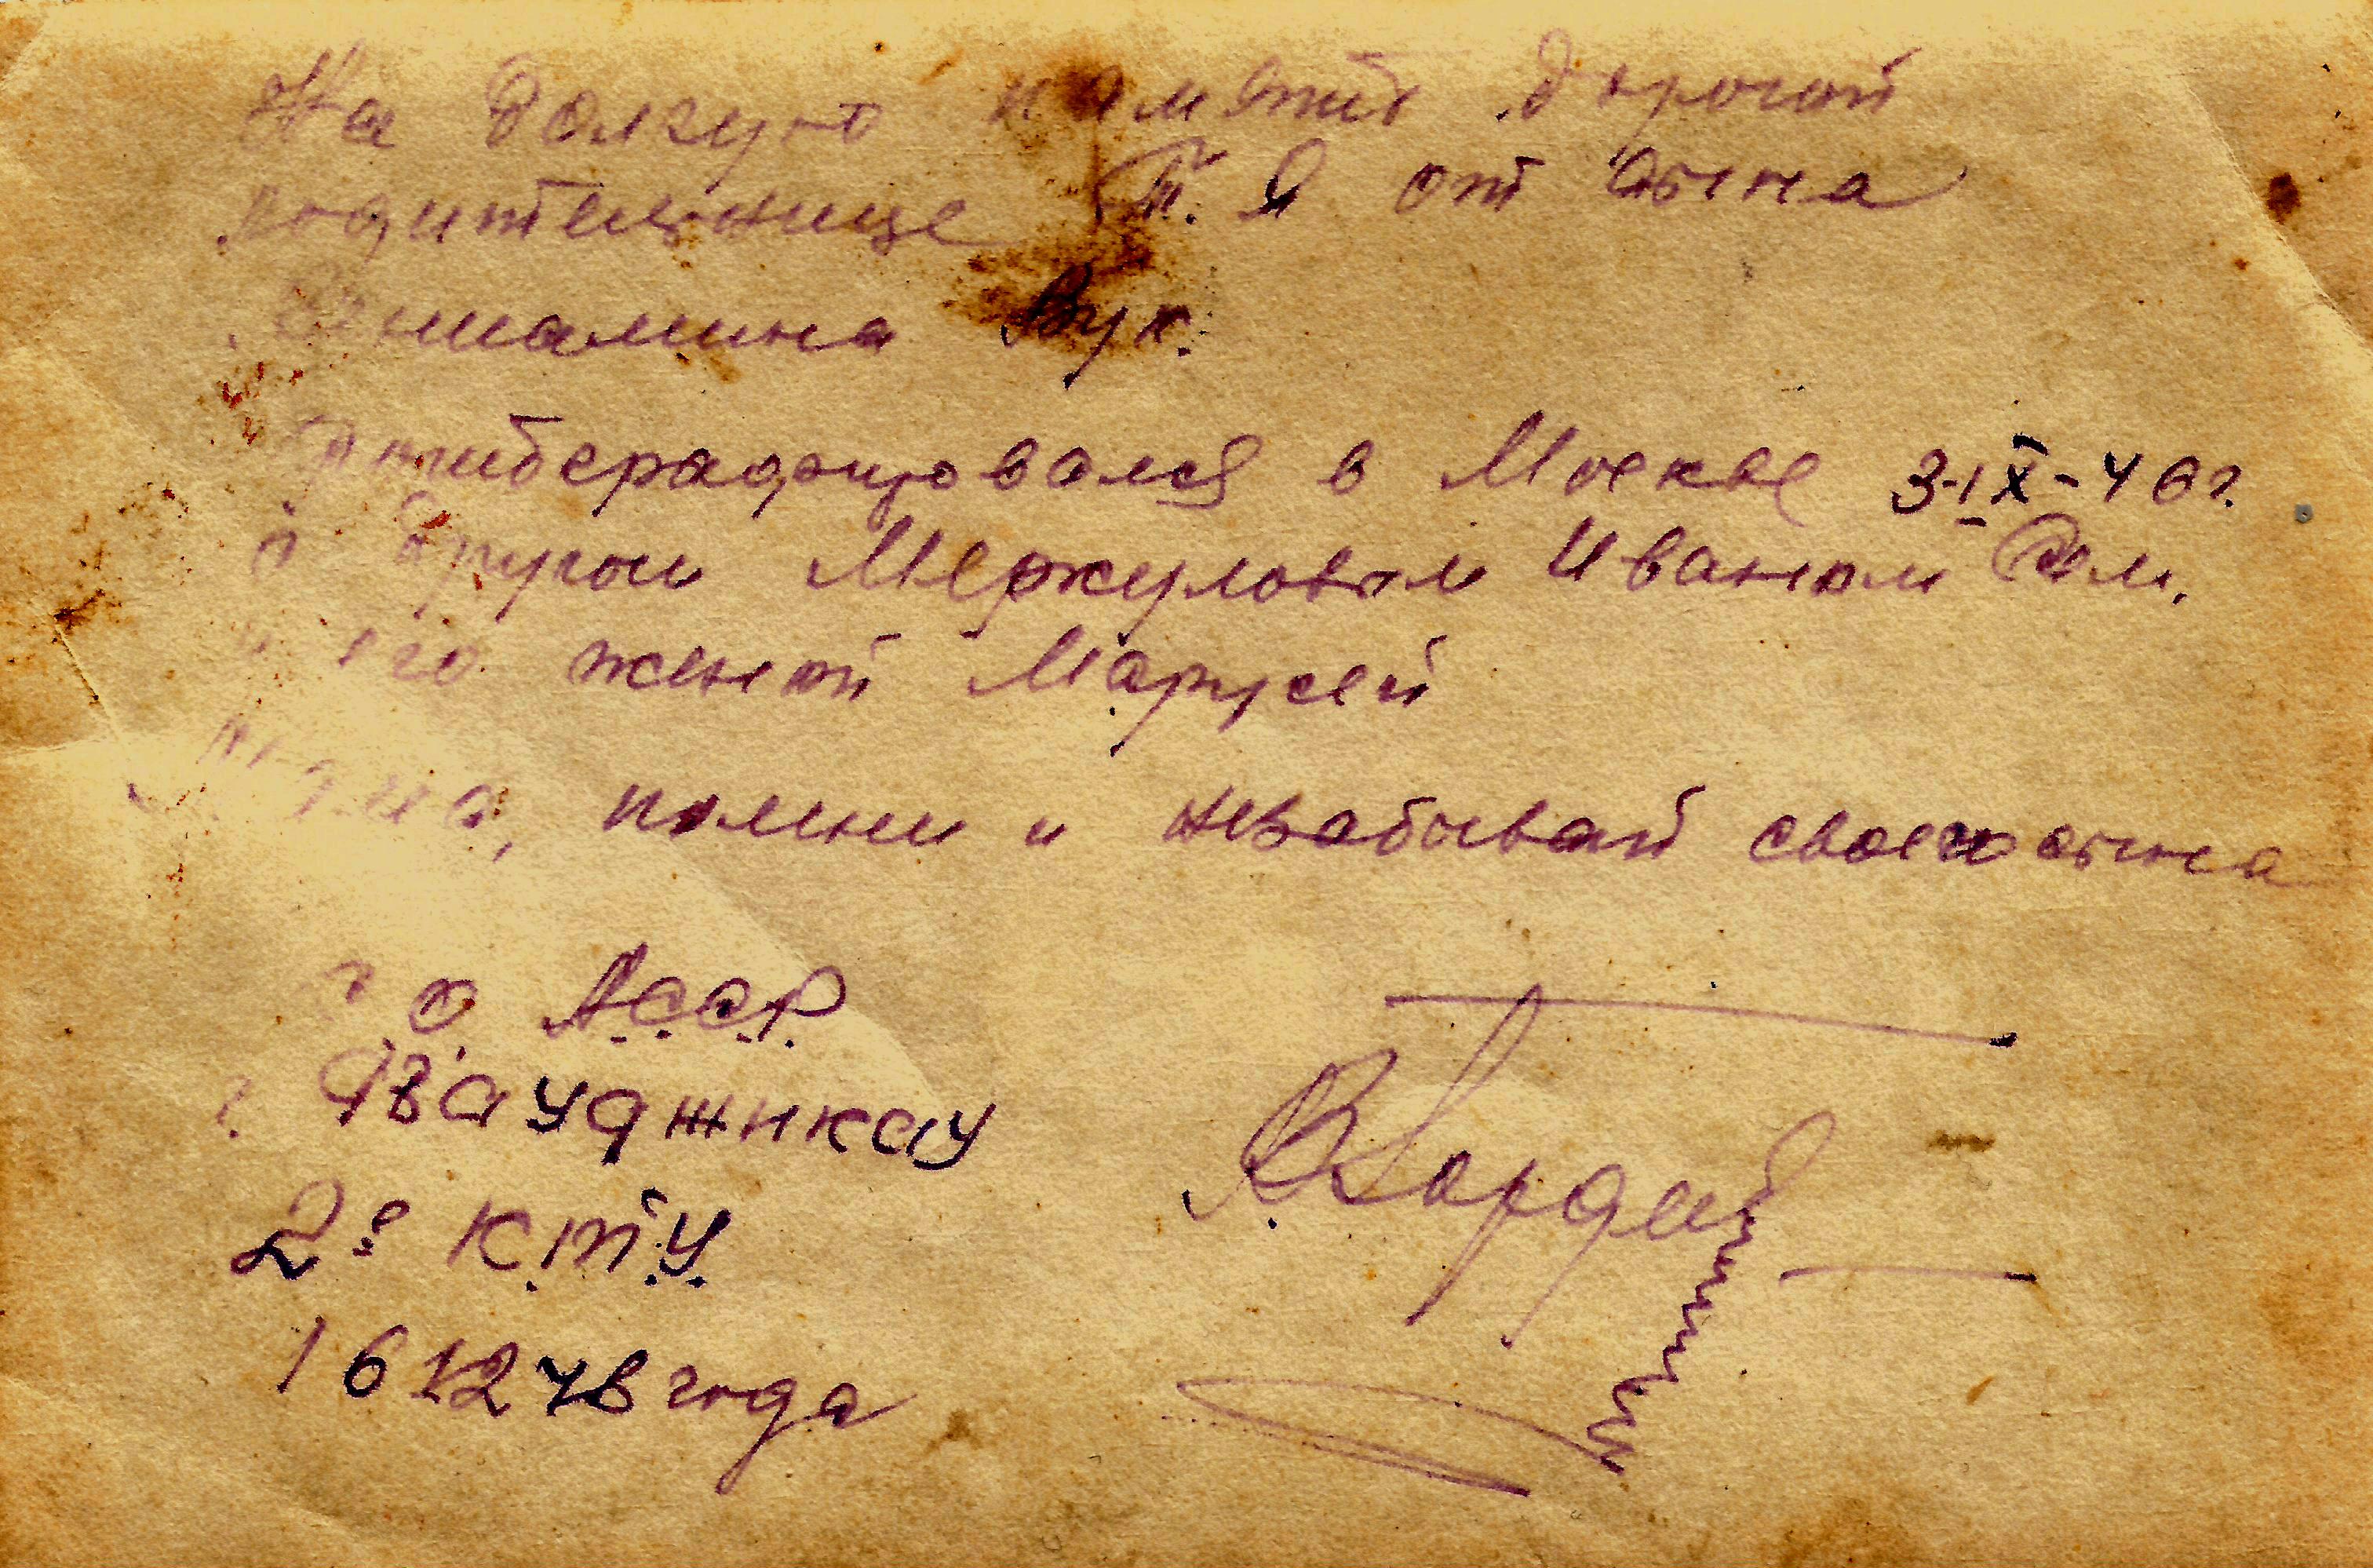 На долгую память дорогой
родительнице Т. Я от сына
Вениамина Вук.
Фотографировался в Москве 3-IX-46г.
с другом Меркуловым Иваном Дем.
и его женой Марусей
Мама, помни и незабывай своего сына
С. О. АССР
г. Дзауджикау
2е К.Т.У.
16 12 46 года